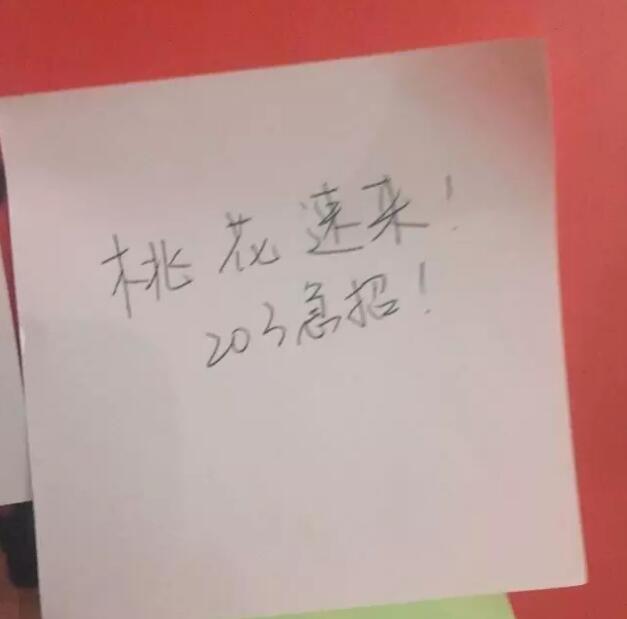 桃花速来！
203急招！